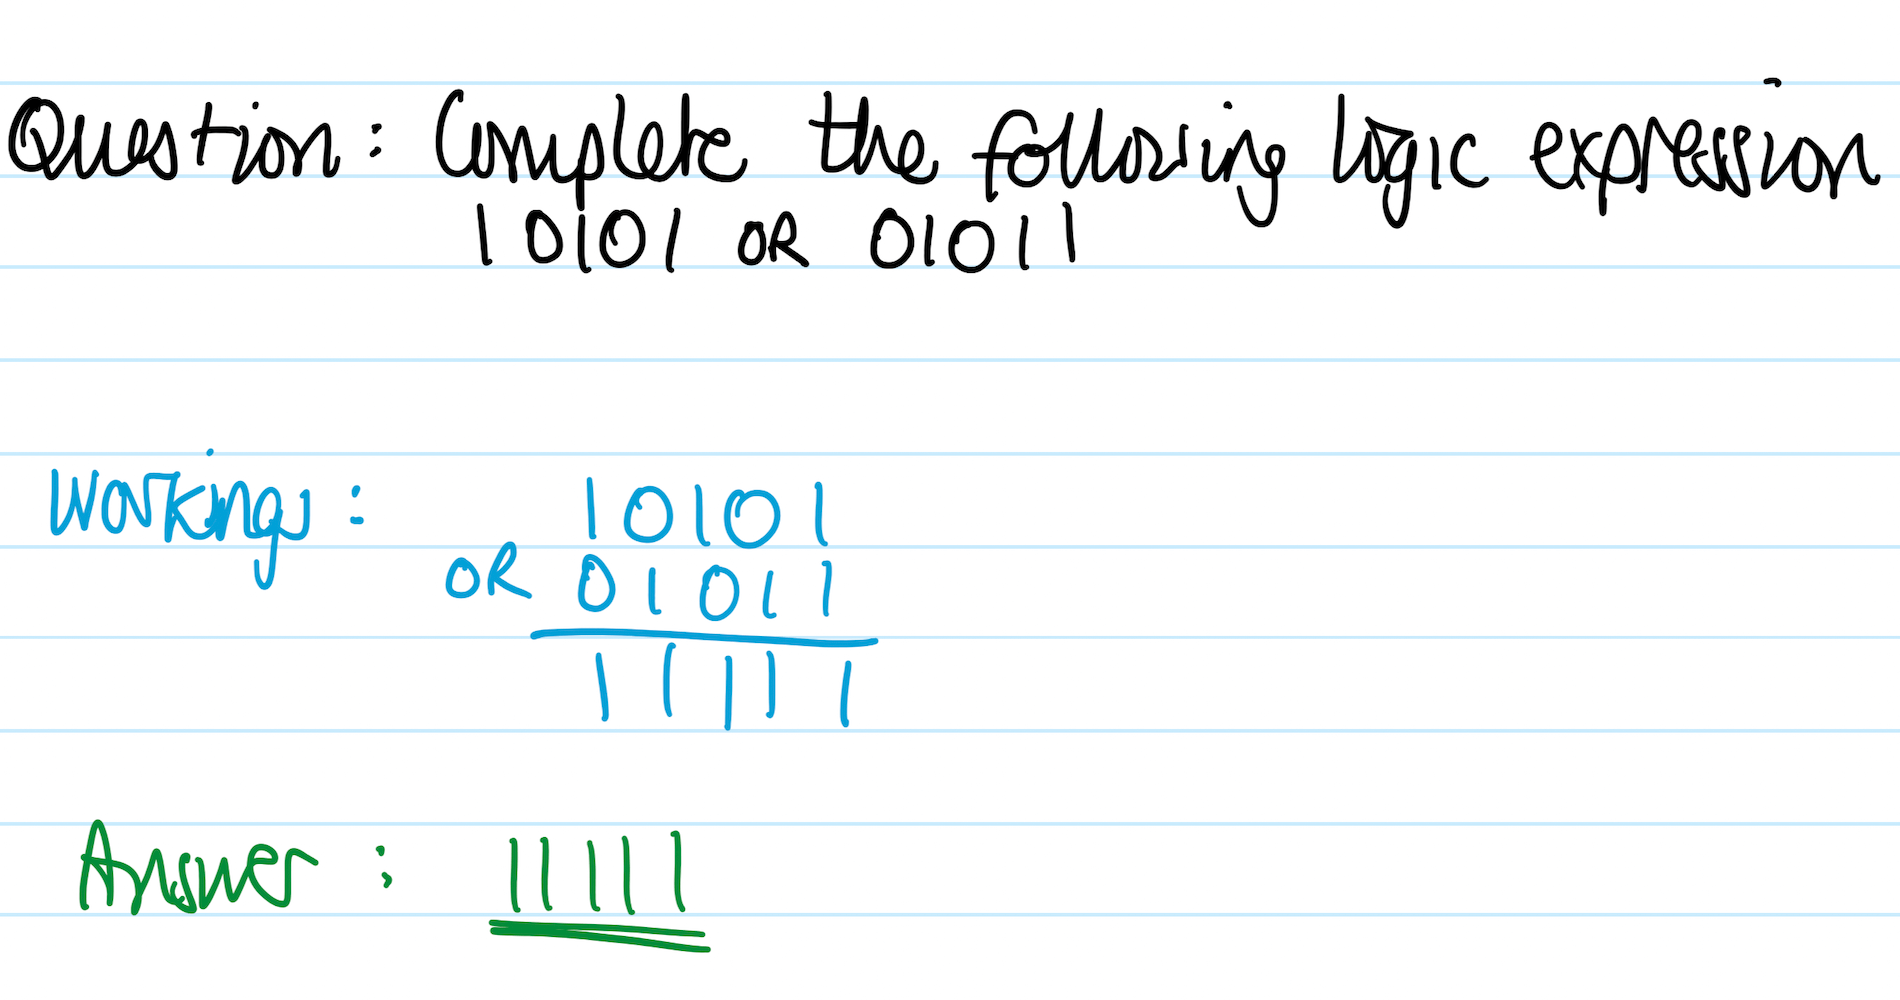 Question: Complete the following logic expression
10101 OR 01011
Workings: 10101
OR 01011
11111
Answer: 11111